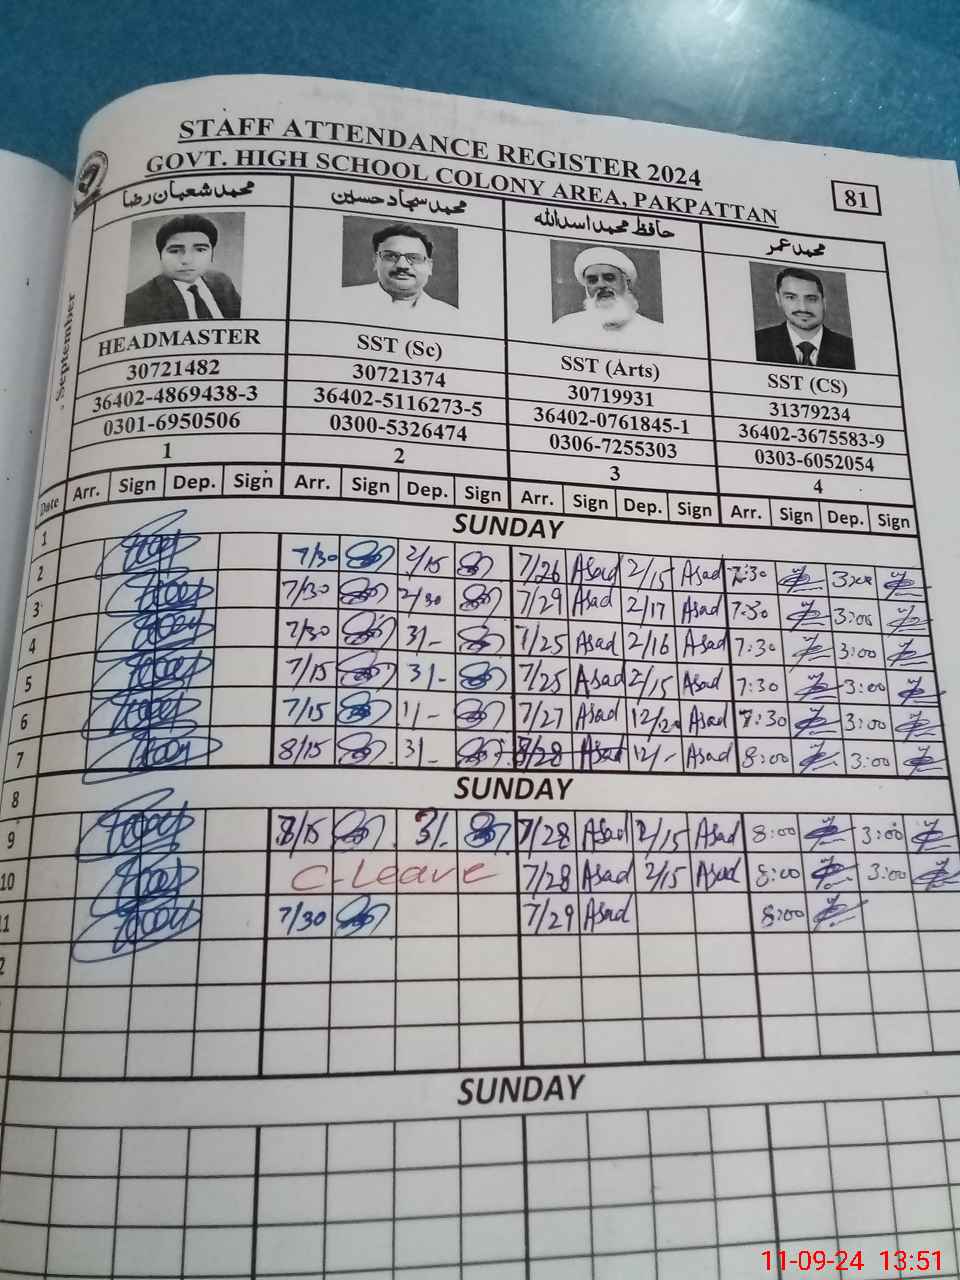 STAFF ATTENDANCE REGISTER 2024
GOVT. HIGH SCHOOL COLONY AREA, PAKPATTAN
81
September
محمد شعبان رضا محمد سجاد حسین حافظ محمد اسداللہ محمد عمر
HEADMASTER SST (Sc) SST (Arts) SST (CS)
30721482 30721374 30719931 31379234
36402-4869438-3 36402-5116273-5 36402-0761845-1 36402-3675583-9
0301-6950506 0300-5326474 0306-7255303 0303-6052054
1 2 3 4
Date Arr. Sign Dep. Sign Arr. Sign Dep. Sign Arr. Sign Dep. Sign Arr. Sign Dep. Sign
1 SUNDAY
2 7/30 2/15 7/26 Asad 2/15 Asad 7:30 3:00
3 7/30 2/30 7/29 Asad 2/17 Asad 7:30 3:00
4 7/30 3/- 7/25 Asad 2/16 Asad 7:30 3:00
5 7/15 3/- 7/25 Asad 2/15 Asad 7:30 3:00
6 7/15 1/- 7/27 Asad 12/20 Asad 7:30 3:00
7 8/15 3/- 8/28 Asad 12/- Asad 8:00 3:00
8 SUNDAY
9 8/15 3/- 7/28 Asad 2/15 Asad 8:00 3:00
10 C-Leave 7/28 Asad 2/15 Asad 8:00 3:00
11 7/30 7/29 Asad 8:00
2
SUNDAY
11-09-24 13:51